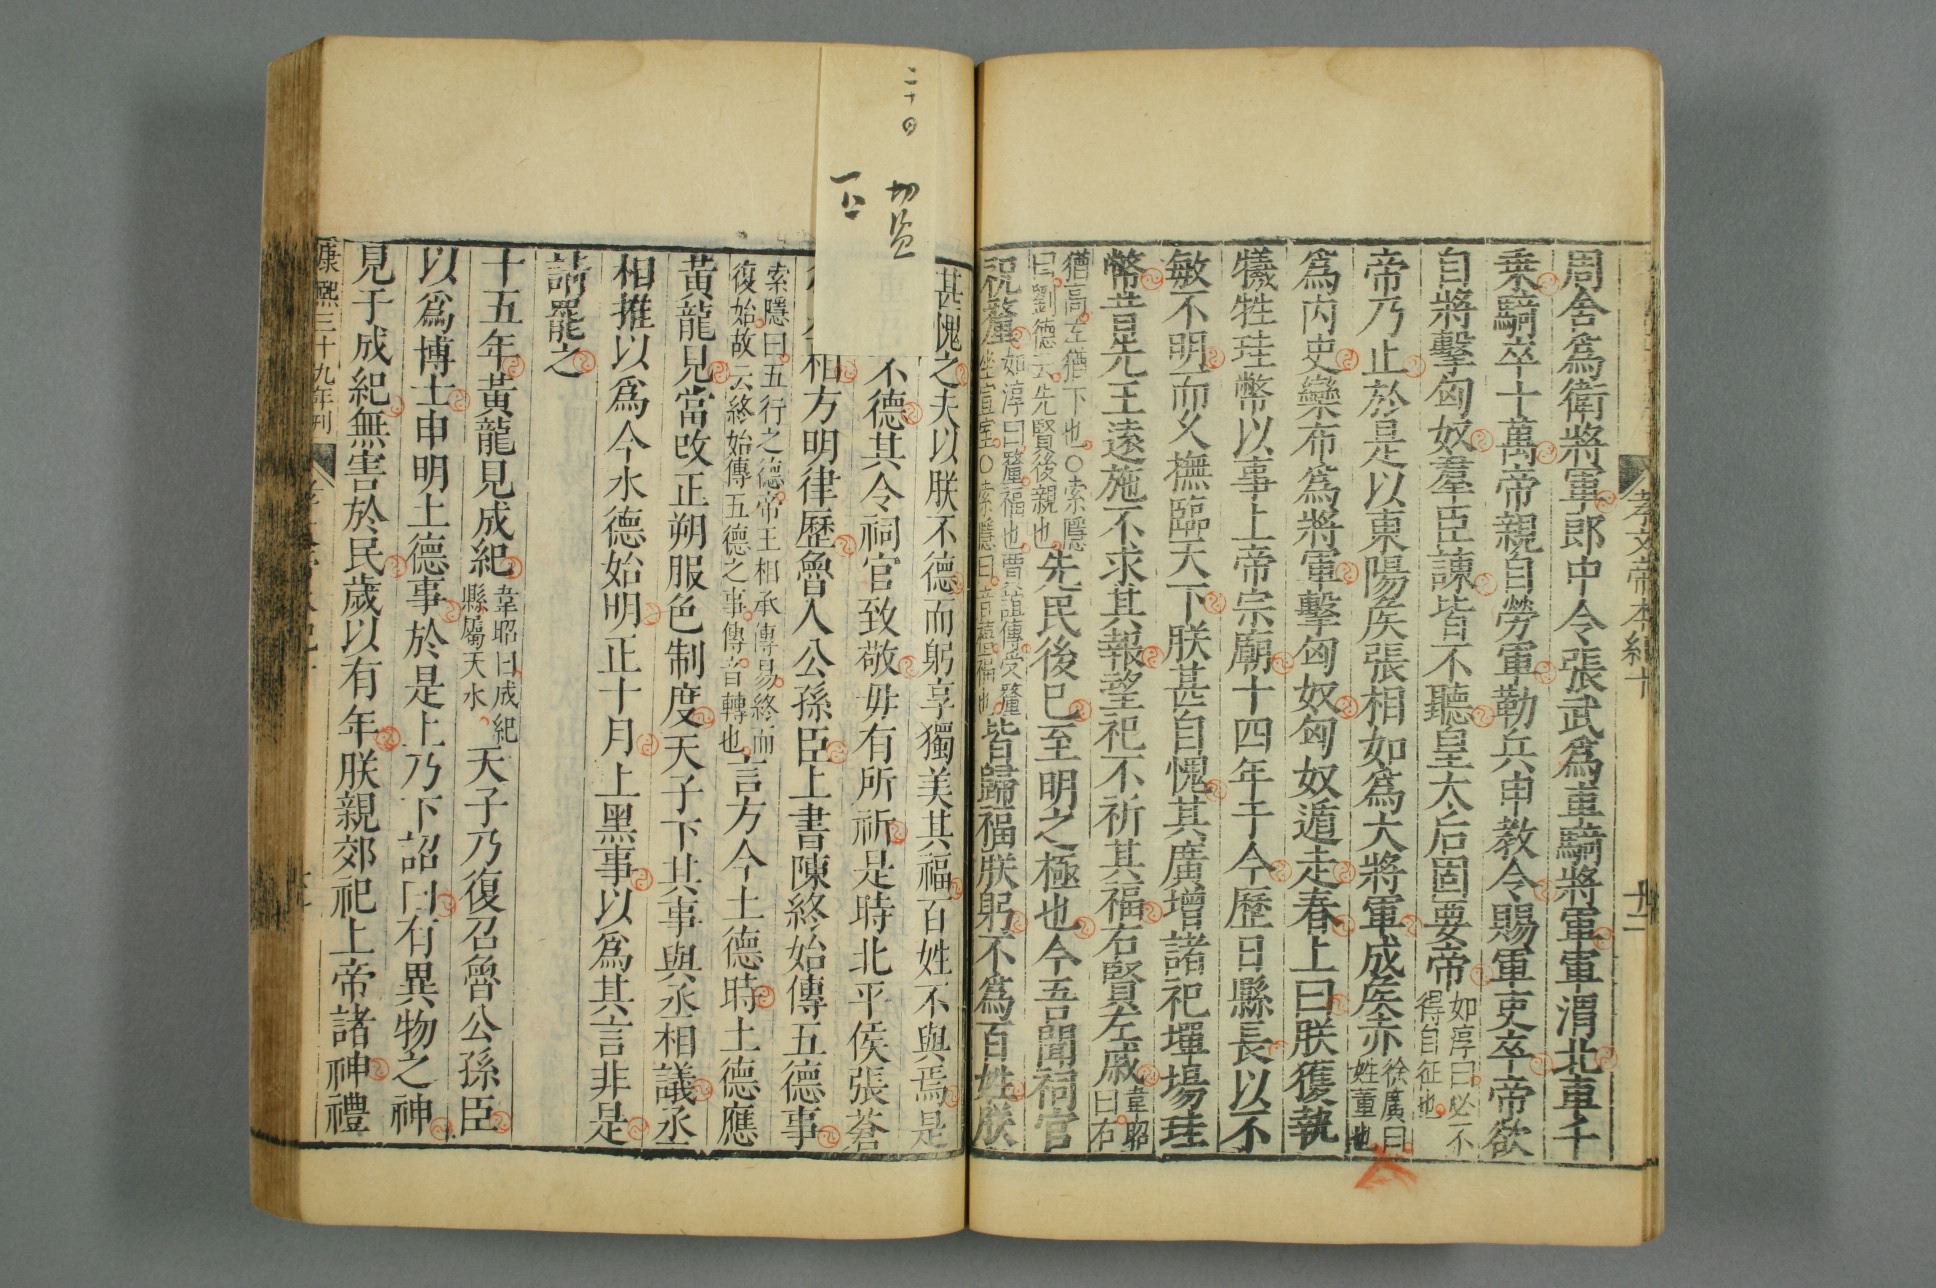 孝文帝本紀十
十二
周舍爲衛將軍郎中令張武爲車騎將軍軍渭北車千
乗騎卒十萬帝親自勞軍勒兵申教令賜軍吏卒帝欲
自將擊匈奴羣臣諫皆不聽皇太后固要帝如淳曰必不得自征也
帝乃止於是以東陽矦張相如爲大將軍成矦赤徐廣曰姓董也
爲内史欒布爲將軍擊匈奴匈奴遁走春上曰朕獲執
犧牲珪幣以事上帝宗廟十四年于今歷日縣長以不
敏不明而乆撫臨天下朕甚自愧其廣增諸祀墠場珪
幣昔先王遠施不求其報望祀不祈其福右賢左戚韋昭曰右
猶高左猶下也○索隱曰劉德云先賢後親也先民後巳至明之極也今吾聞祠官
祝釐如淳曰釐福也賈誼傳受釐坐宣室○索隱曰音僖福也皆歸福朕躬不爲百姓朕
甚愧之夫以朕不德而躬享獨美其福百姓不與焉是
不德其令祠官致敬毋有所祈是時北平侯張蒼
相方明律歷魯人公孫臣上書陳終始傳五德事
索隱曰五行之德帝王相承傳易終而復始故云終始傳五德之事傳音轉也言方今土德時土德應
黃龍見當改正朔服色制度天子下其事與丞相議丞
相推以爲今水德始明正十月上黑事以爲其言非是
請罷之
十五年黃龍見成紀韋昭曰成紀縣屬天水天子乃復召魯公孫臣
以爲博士申明土德事於是上乃下詔曰有異物之神
見于成紀無害於民歲以有年朕親郊祀上帝諸神禮
康熙三十九年刊